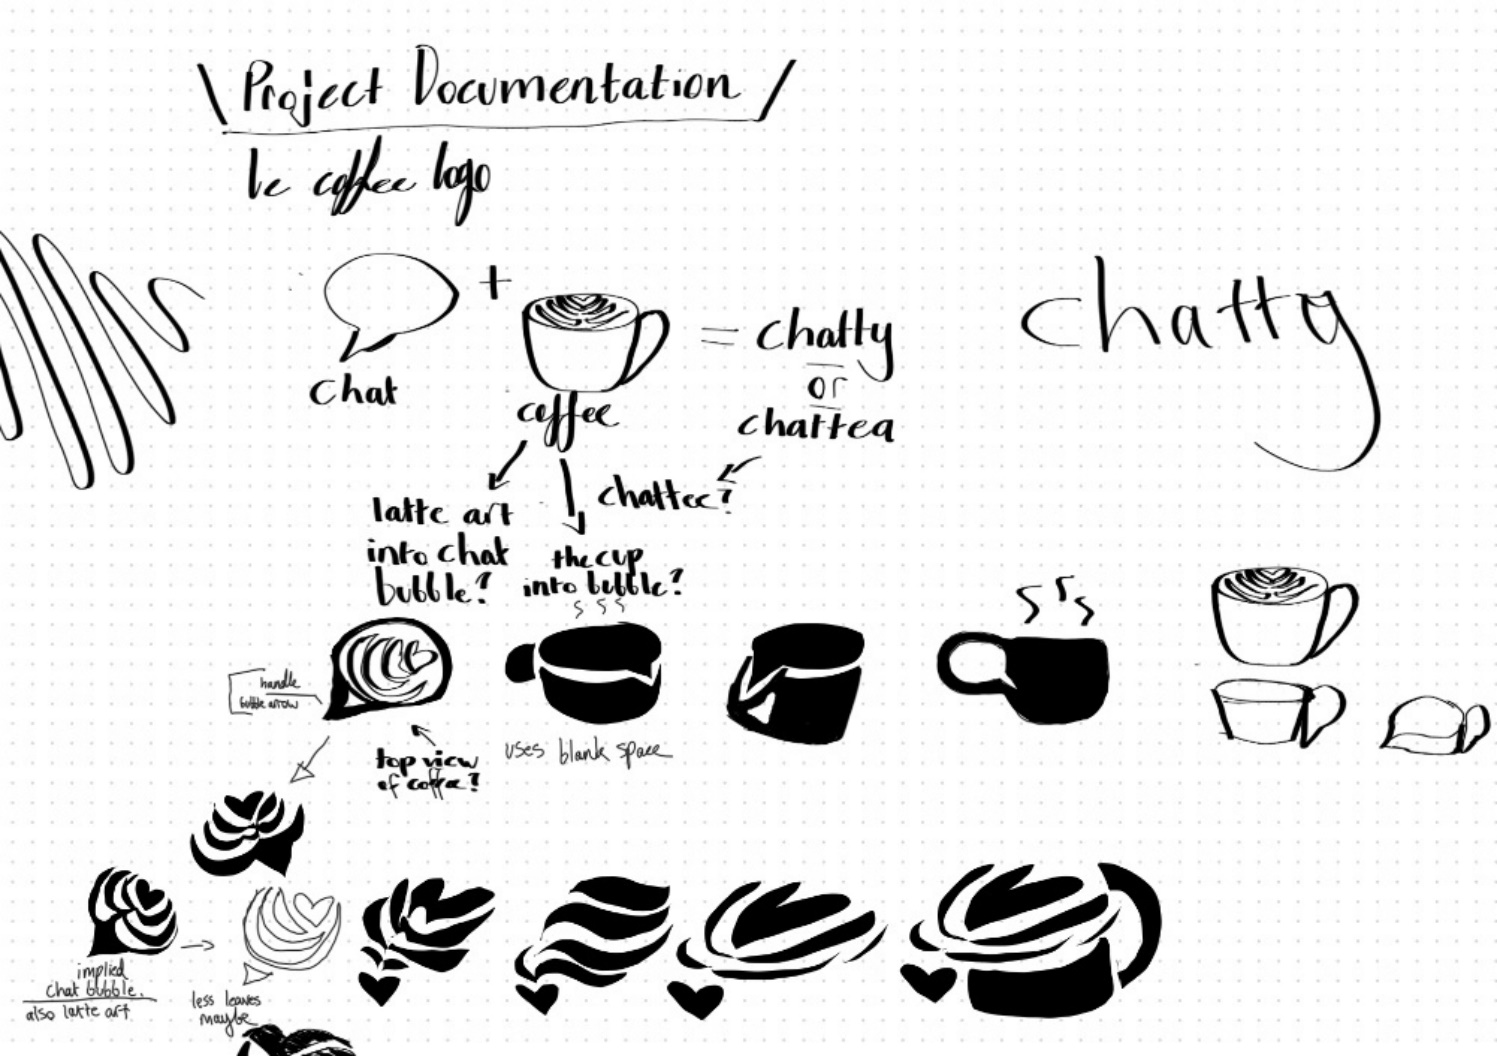 \ Project Documentation /
le coffee logo
+
chat
coffee
= chatty
or
chattea
chatty
chattee?
latte art
into chat
bubble?
the cup
into bubble?
handle
bubble arrow
top view
of coffee?
uses blank space
implied
chat bubble.
also latte art
less leaves
maybe